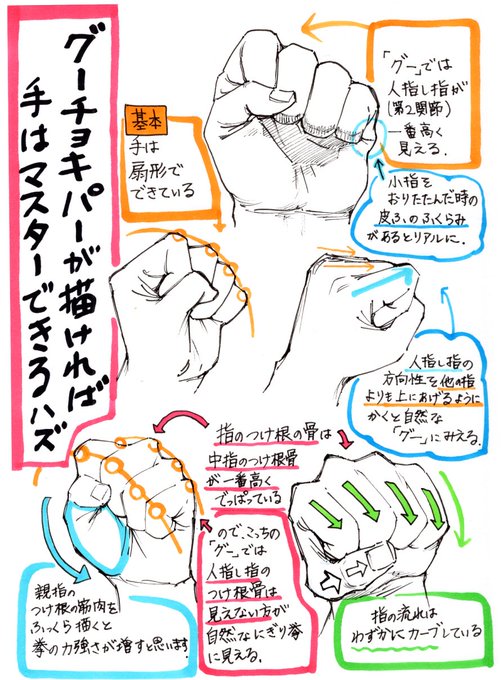 グーチョキパーが描ければ
手はマスターできるハズ
基本
手は
扇形で
できている
「グー」では
人指し指が
(第2関節)
一番高く
見える.
小指を
おりたたんだ時の
皮ふのふくらみ
があるとリアルに.
人指し指の
方向性を他の指
よりも上にあげるように
かくと自然な
「グー」にみえる.
指のつけ根の骨は
中指のつけ根骨
が一番高く
でっぱっている
ので、こっちの
「グー」では
人指し指の
つけ根骨は
見えない方が
自然なにぎり拳
に見える.
親指の
つけ根の筋肉を
ふっくら描くと
拳の力強さが増すと思います
指の流れは
わずかにカーブしている